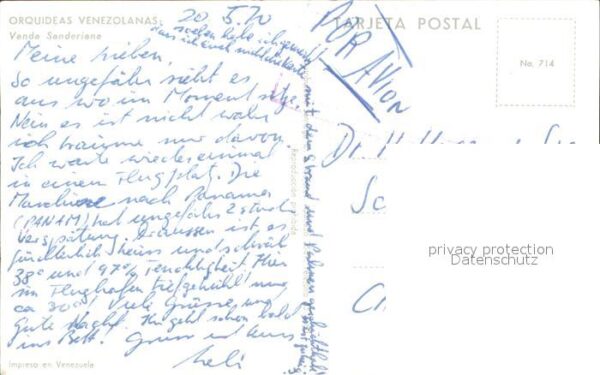 ORQUIDEAS VENEZOLANAS
Vanda Sanderiana
20.5.70
TARJETA POSTAL
POR AVION
No. 714
soeben habe ich gemerkt
dass ich euch
Meine Lieben,
So ungefähr sieht es
aus wo im Moment sitze.
Nein es ist nicht wahr
ich träume nur davon.
Ich warte wiedereinmal
in einem Flugplatz. Die
Maschine nach Panama
(PANAM) hat ungefähr 2 Stunden
Verspätung. Draussen ist es
fürchterlich heiss und schwül
38° und 97% Feuchtigkeit. Hier
im Flughafen tiefgekühlt nur
ca 20°. Viele Grüsse und
Gute Nacht. Ihr geht schon bald
ins Bett. Gruss und Kuss
Heli
mit dem Strand und Palmen
Impreso en Venezuela
Dr.
privacy protection
Datenschutz